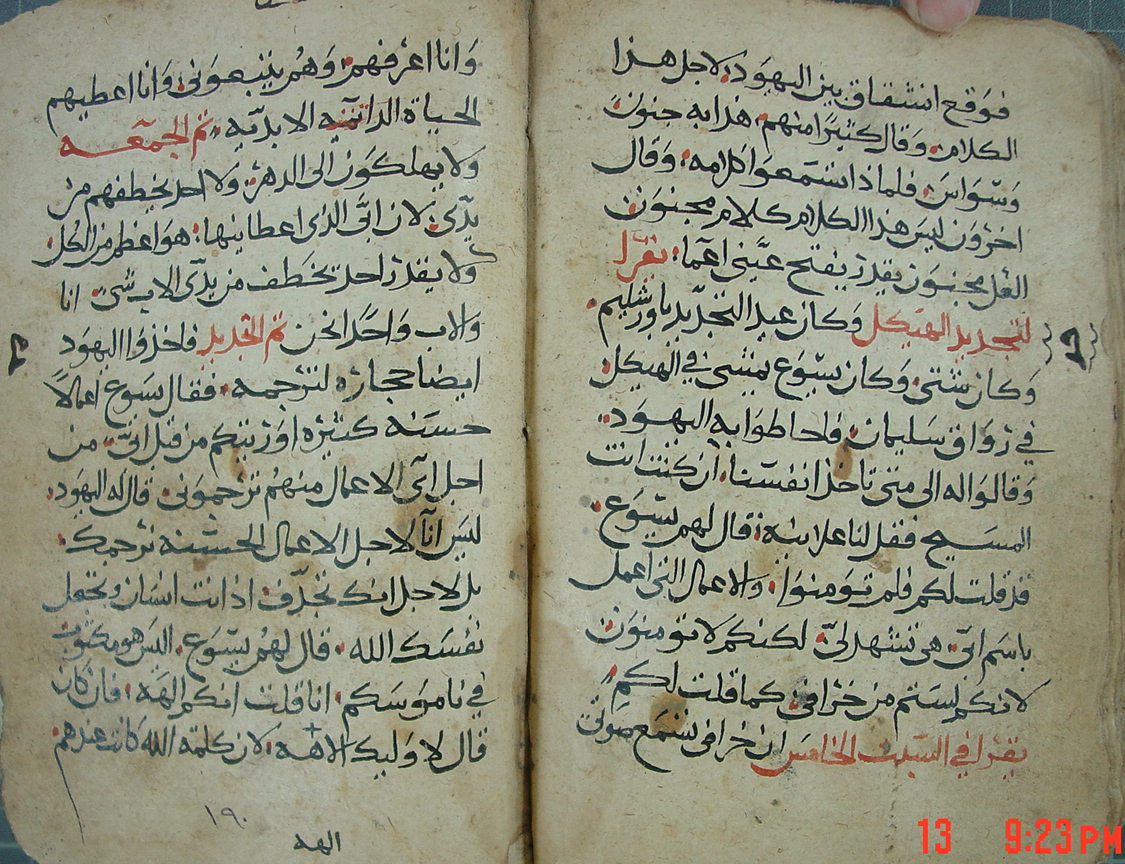 فوقع انشقاق بين اليهود لاجل هذا
الكلام. وقال كثيرا منهم. هذا به جنون
وسواس. فلماذا استمعوا كلامه. وقال
اخرون ليس هذا الكلام كلام مجنون
العل مجنون يقدر يفتح عيني اعما. يقرا
لتجديد الهيكل وكان عيد التجديد باورشليم.
وكان شتى. وكان يسوع يمشى في الهيكل.
في رواق سليمان. فاحاطوا به اليهود.
وقالوا له الى متى تاخذ انفسنا. ان كنت انت
المسيح فقل لنا علانيه. قال لهم يسوع.
قد قلت لكم فلم تومنوا. والاعمال التي اعمل
باسم ابي. هى تشهد لي. لكنكم لا تومنون
لانكم لستم من خرافي. كما قلت لكم
يقرا في السبت الخامس ان خرافي تسمع صوتي
وانا اعرفهم. وهم يتبعوني. وانا اعطيهم
الحياة الدائمة الابديه. تم الجمعه
ولا يهلكون الى الدهر. ولا احد يخطفهم من
يدي. لان ابي الذي اعطانيها. هو اعظم من الكل.
ولا يقدر احد يخطف من يدي الاب شي. انا
والاب واحدا نحن تم التجديد فاخذوا اليهود
ايضا حجاره لترجمه. فقال يسوع اعمالا
حسنه كثيره اوريتكم من قبل ابي. من
اجل اي الاعمال منهم ترجموني. قال له اليهود.
ليس انا لاجل الاعمال الحسنه نرجمك.
بل لاجل انك تجدف. اذ انت انسان وتجعل
نفسك الله. قال لهم يسوع. اليس هو مكتوب
في ناموسكم. انا قلت انكم الهة. فان كان
قال لاوليك الاهة. لان كلمة الله كانت عندهم.
١٩٠
الهه
13 9:23PM